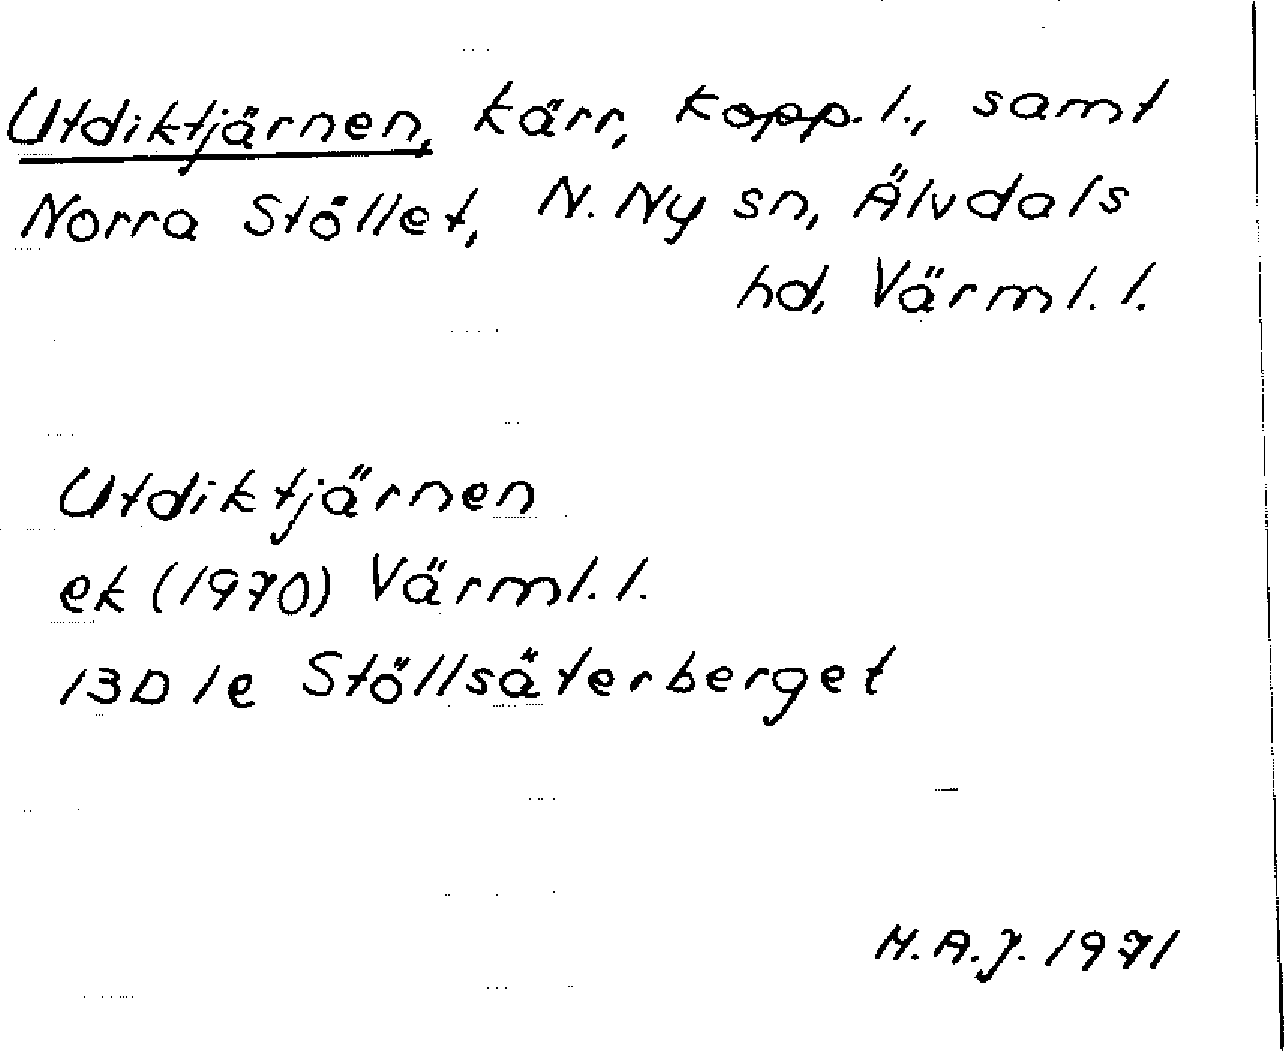 Utdiktjärnen, kärr, Kopp. l., samt
Norra Stöllet, N. Ny sn, Älvdals
hd, Värml. l.
Utdiktjärnen
ek (1970) Värml. l.
13D 1e Stöllsäterberget
H.A.J. 1971